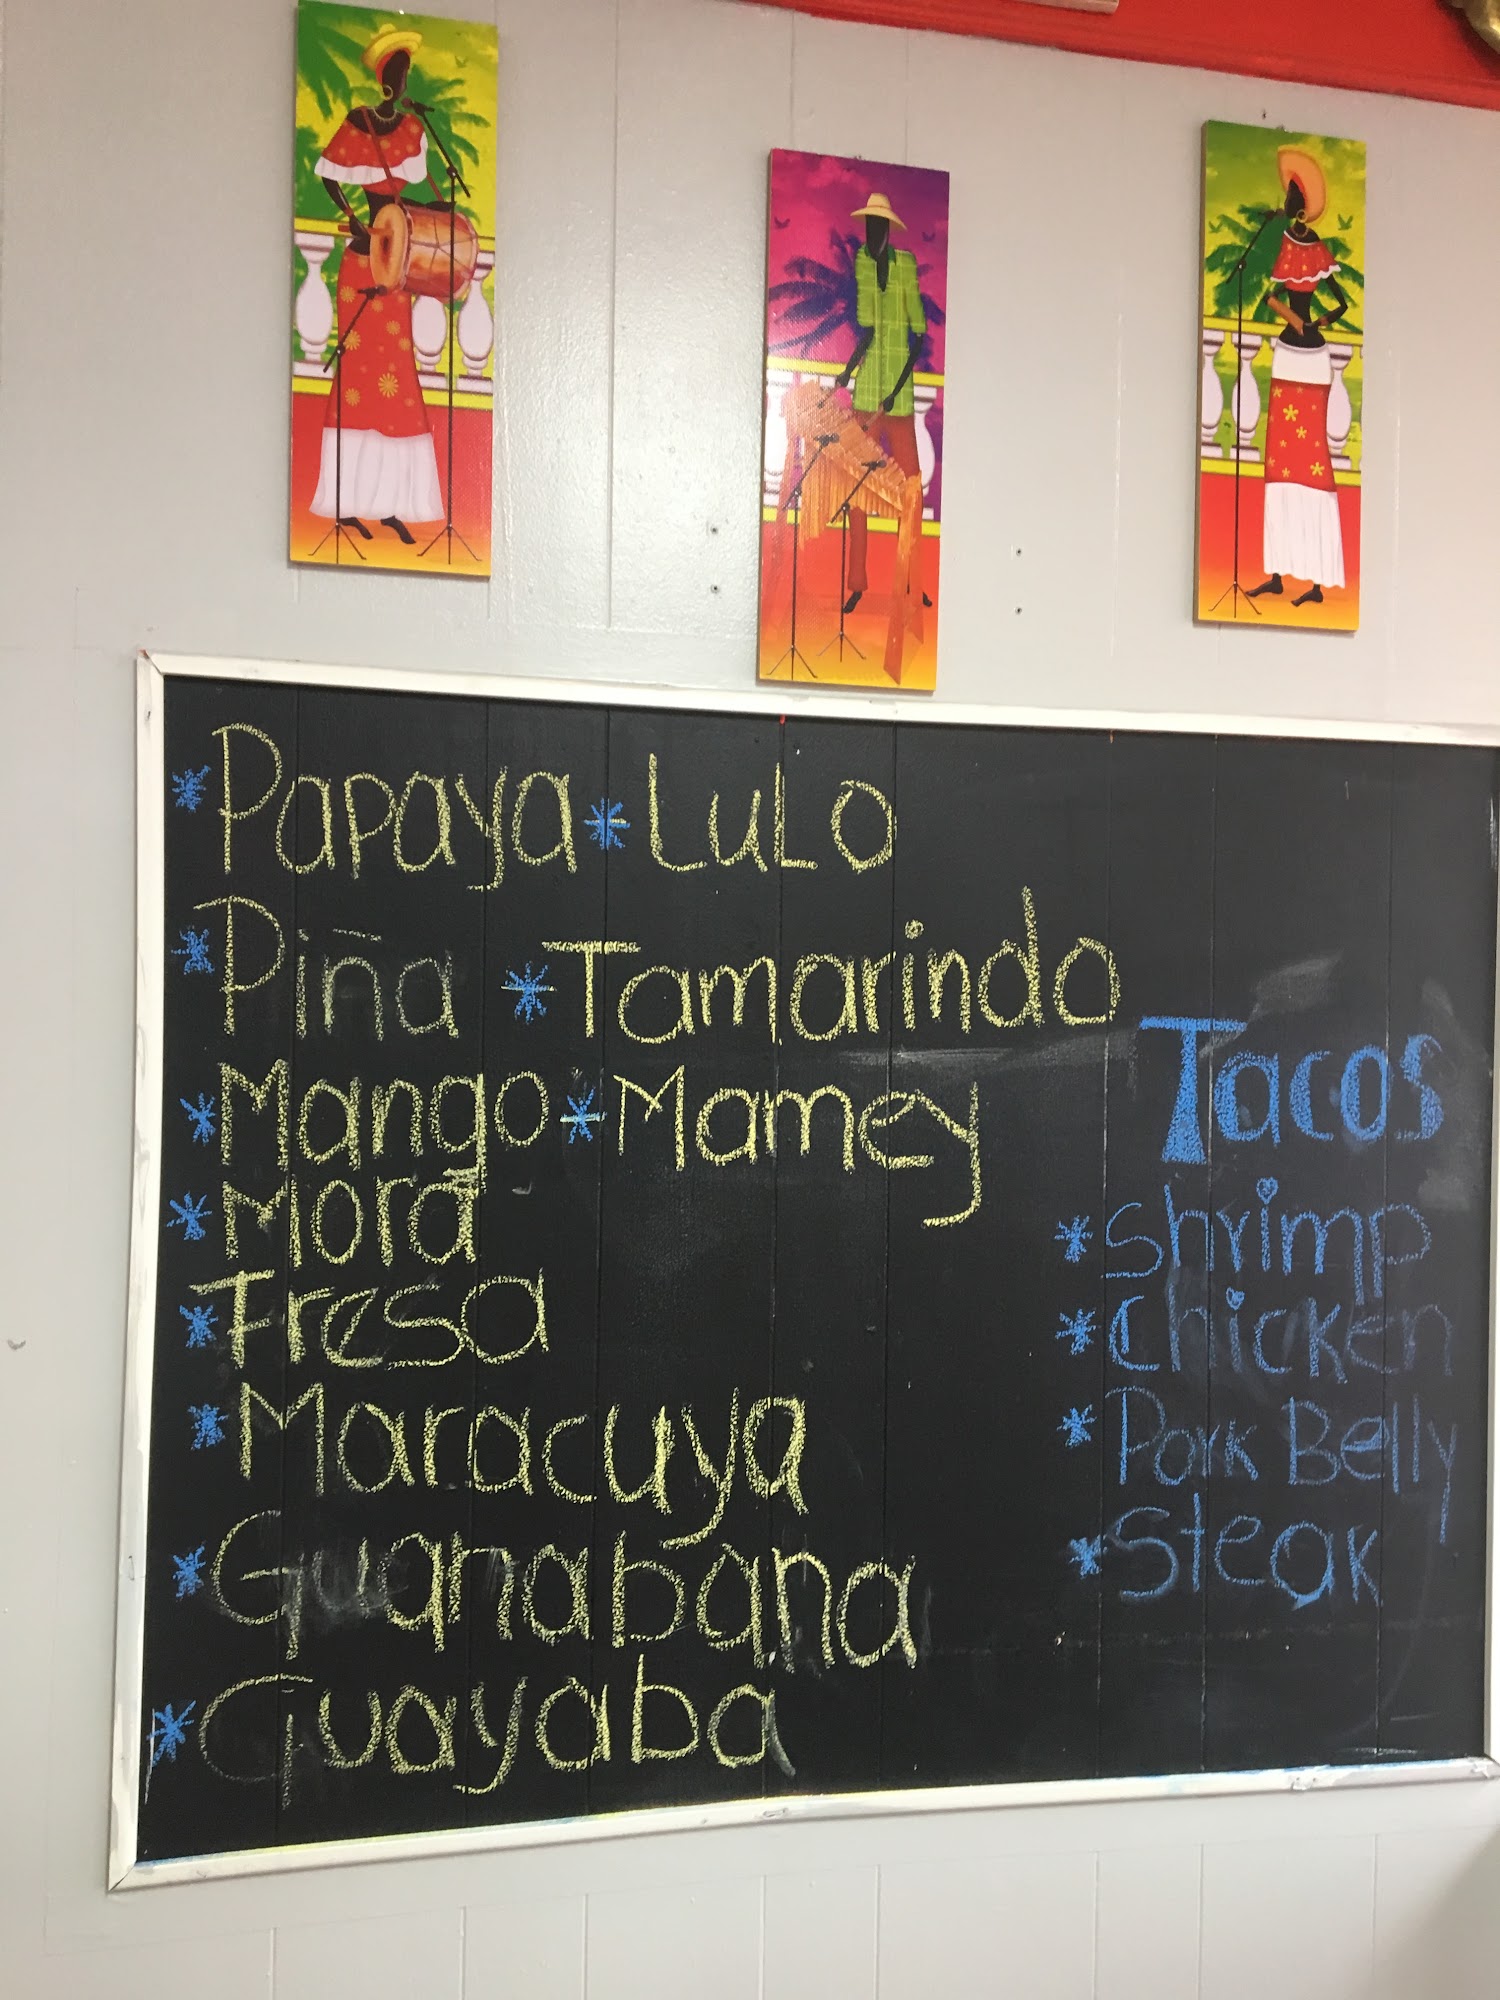 * Papaya * Lulo
* Piña * Tamarindo
* Mango * Mamey
* Mora
* Fresa
* Maracuya
* Guanabana
* Guayaba
Tacos
* Shrimp
* Chicken
* Pork Belly
* Steak